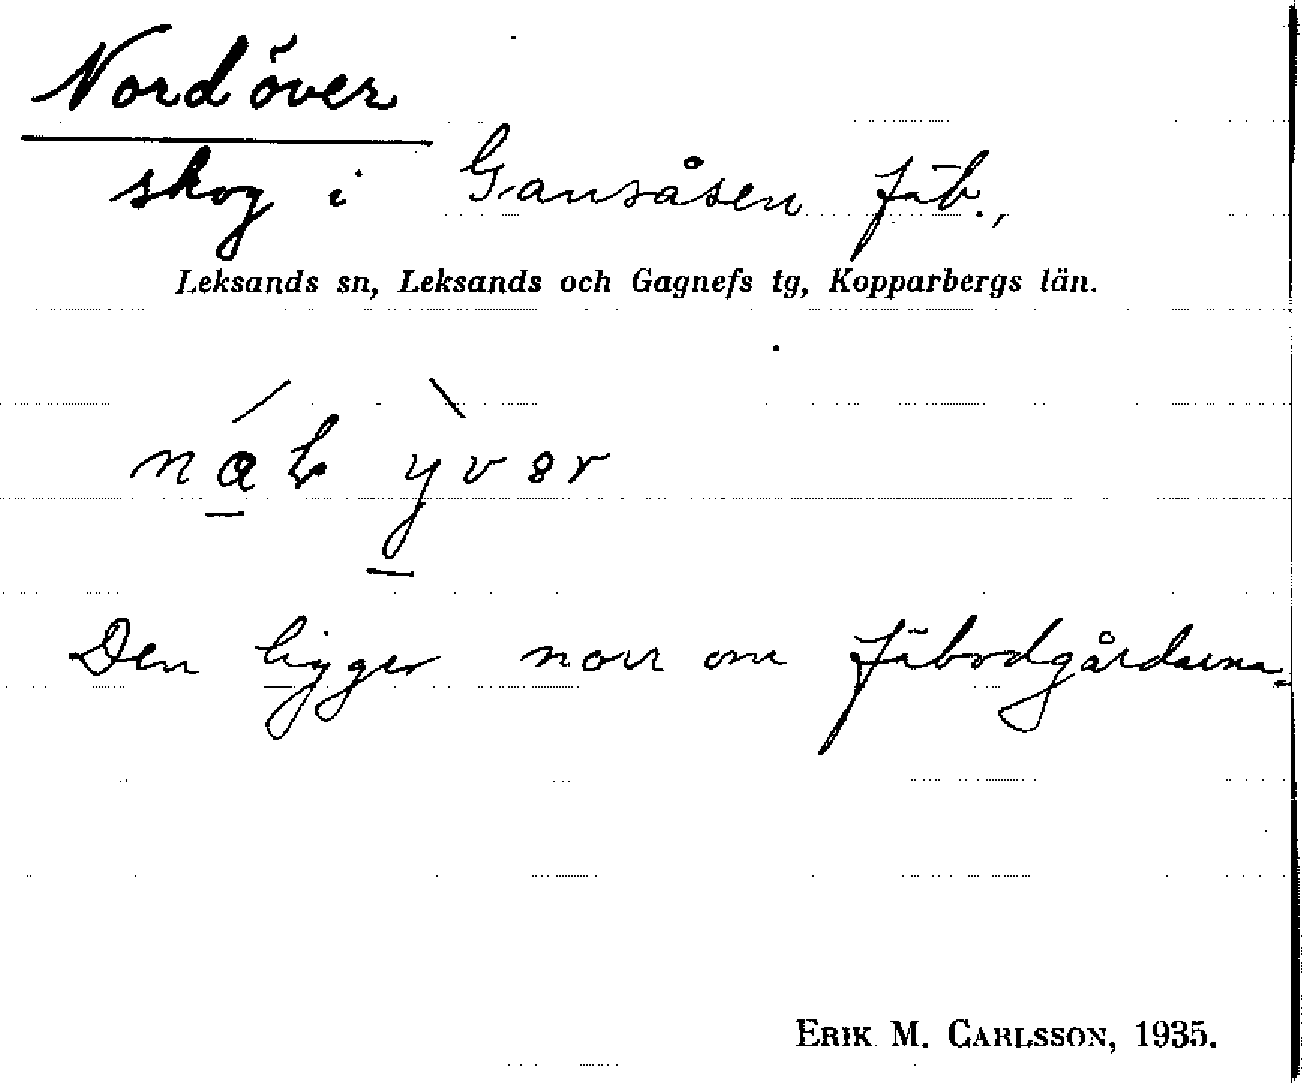 Nordöver
skog i Gansåsen fäb.,
Leksands sn, Leksands och Gagnefs tg, Kopparbergs län.
yvər
Den ligger norr om fäbodgårdarna.
ERIK M. CARLSSON, 1935.